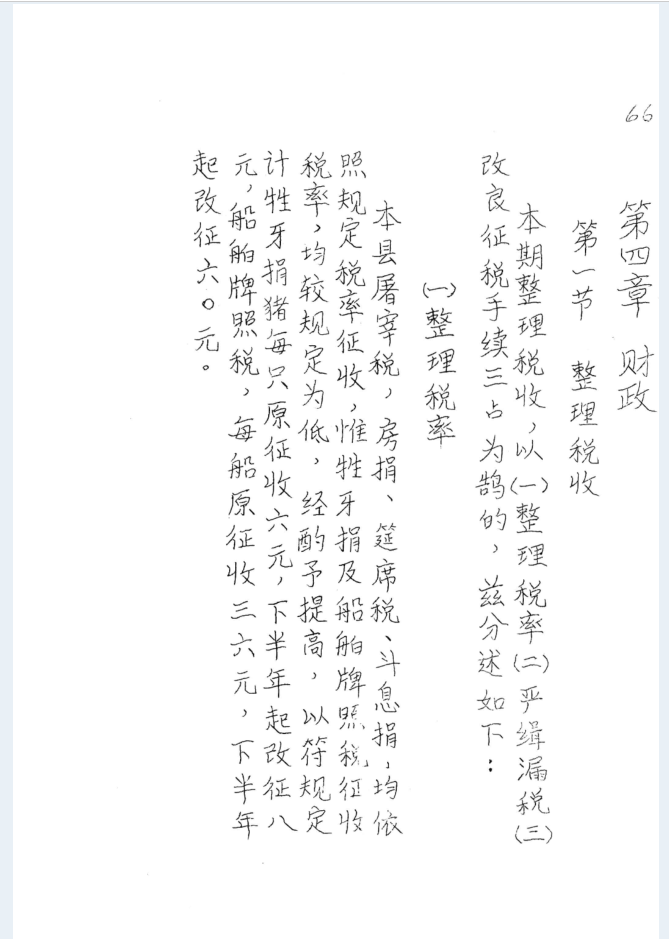 66
第四章 财政
第一节 整理税收
本期整理税收,以(一)整理税率(二)严缉漏税(三)
改良征税手续三占为鹄的,兹分述如下:
(一)整理税率
本县屠宰税,房捐、筵席税、斗息捐,均依
照规定税率征收,惟牲牙捐及船舶牌照税,征收
税率,均较规定为低,经酌予提高,以符规定
计牲牙捐猪每只原征收六元,下半年起改征八
元,船舶牌照税,每船原征收三六元,下半年
起改征六〇元。